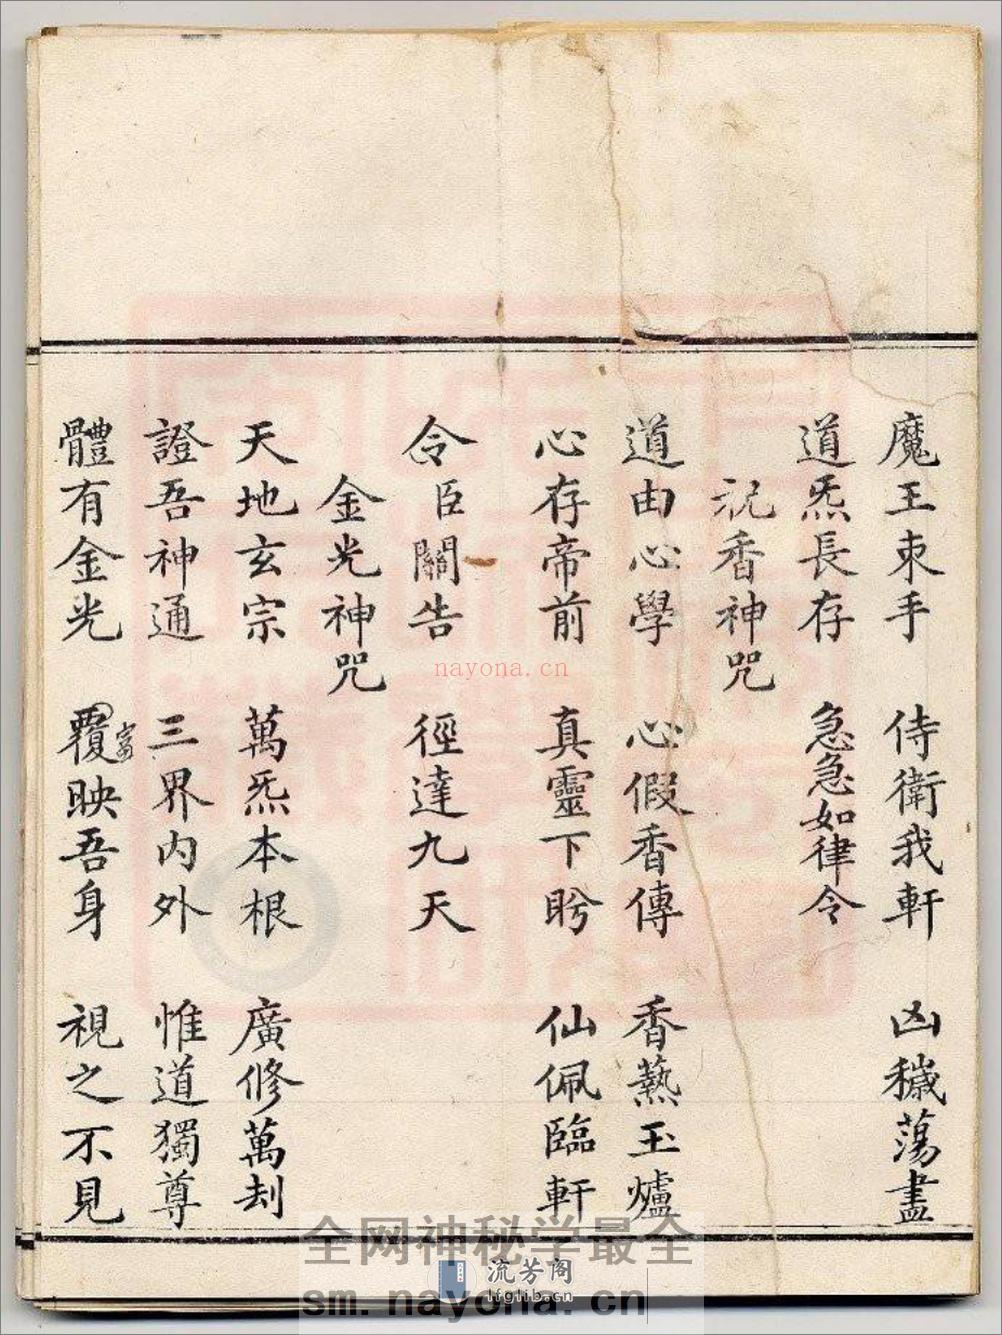 魔王束手 侍衛我軒 凶穢蕩盡
道炁長存 急急如律令
祝香神咒
道由心學 心假香傳 香爇玉爐
心存帝前 真靈下盻 仙佩臨軒
令臣關告 徑達九天
金光神咒
天地玄宗 萬炁本根 廣修萬刼
證吾神通 三界內外 惟道獨尊
體有金光 覆映吾身 視之不見
nayona.cn
全网神秘学最全
流芳阁
lfglib.cn
sm.nayona.cn